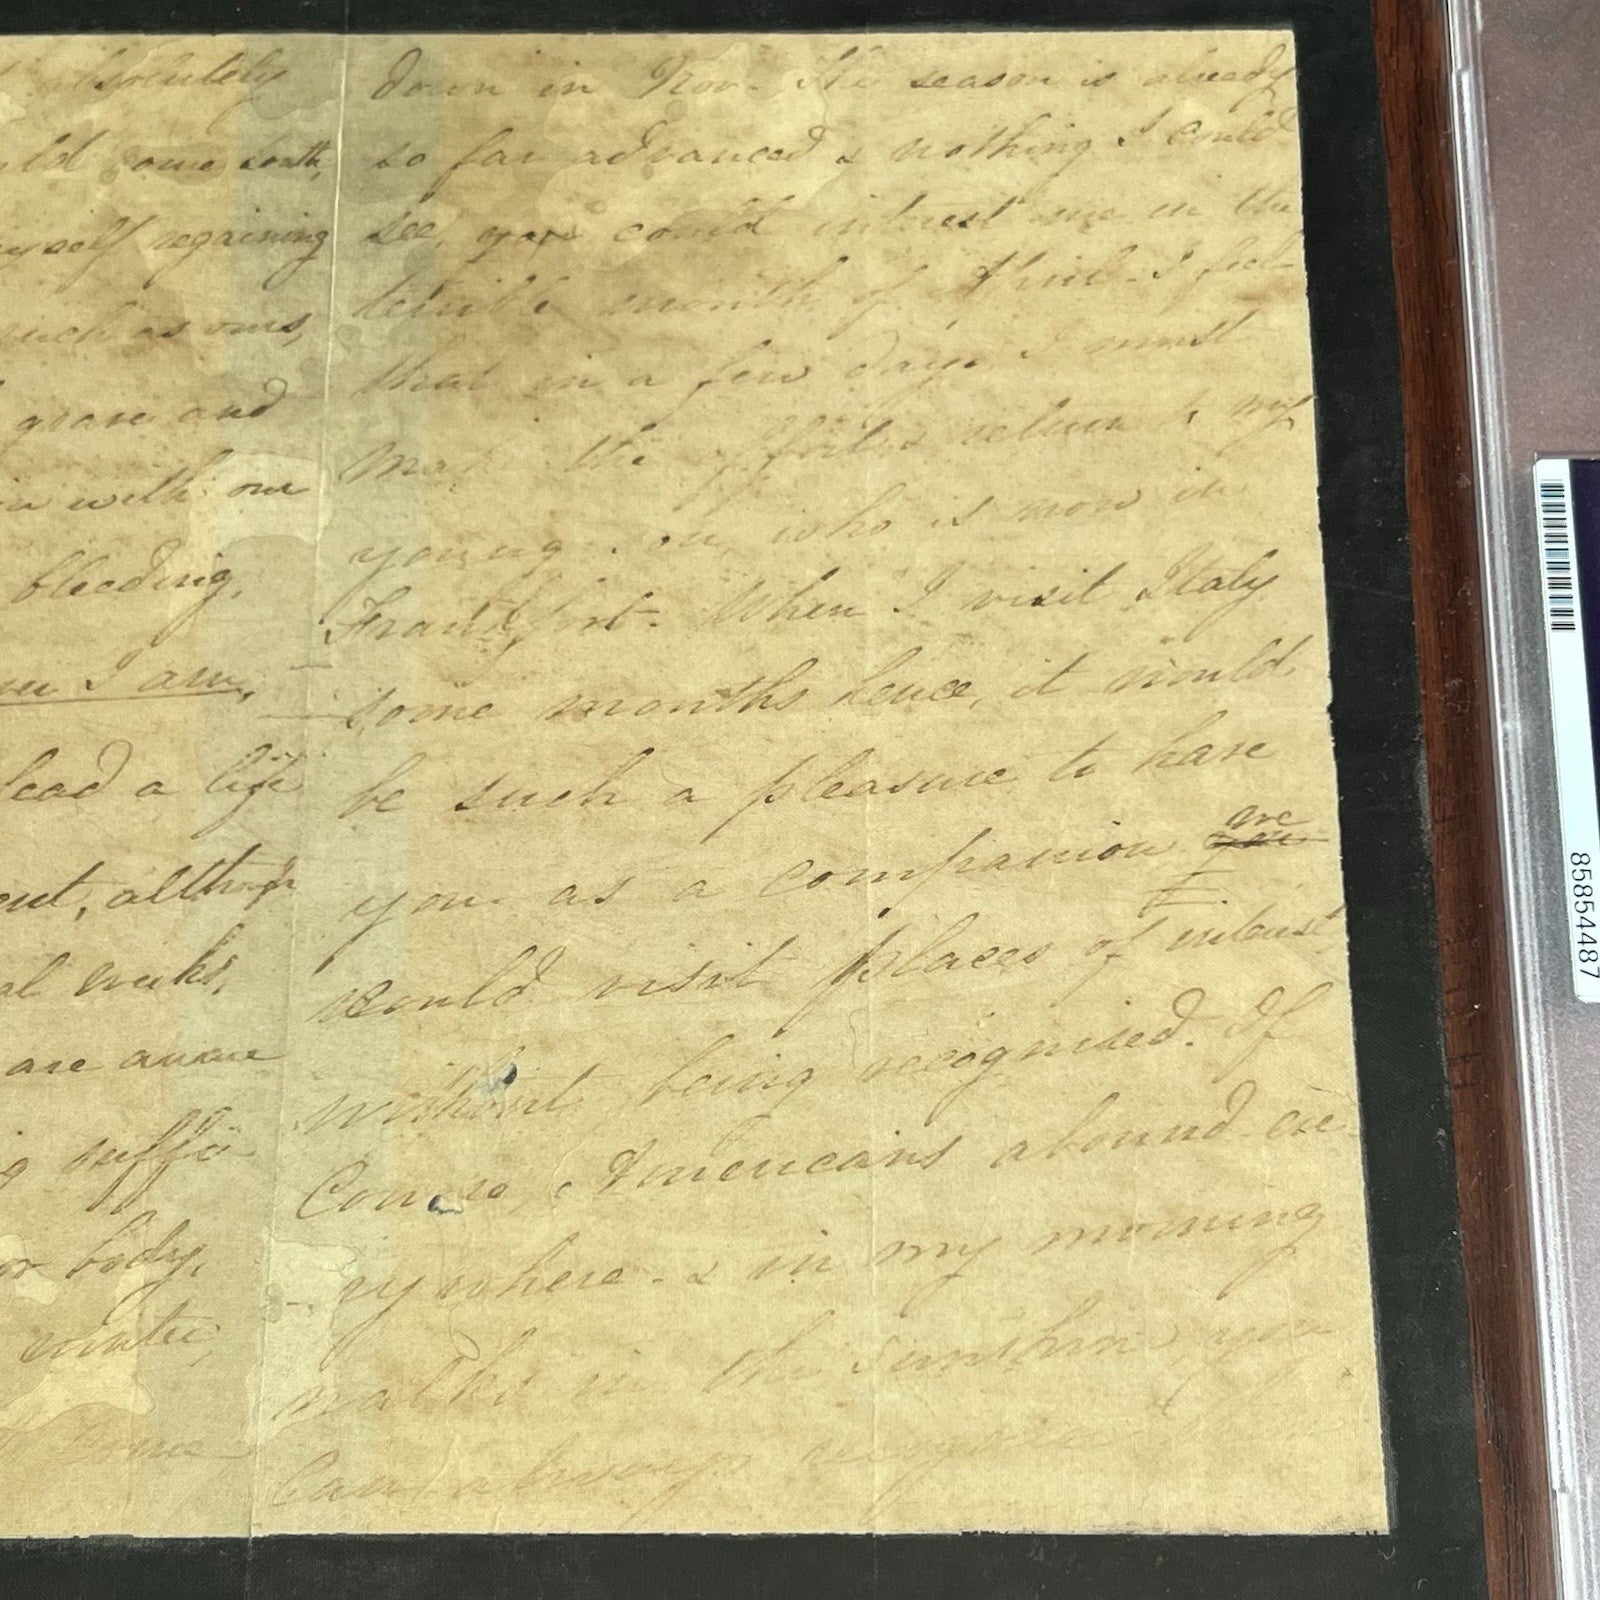 absolutely
ld come south,
myself regaining
such as ours,
grave and
in with our
bleeding,
I am,
lead a life
out, although
al weeks,
are aware
suffo
or body,
winter,
Rome
down in Nov. The season is already
so far advanced & nothing I could
see, now could interest me in the
terrible month of April. I feel
that in a few days I must
make the effort & return to my
young son, who is now in
Frankfort. When I visit Italy
some months hence, it would
be such a pleasure to have
you as a companion we
would visit places of interest
without being recognised. Of
Course, Americans abound eve
rywhere - & in my morning
walks in the sunshine, you
can always
85854487